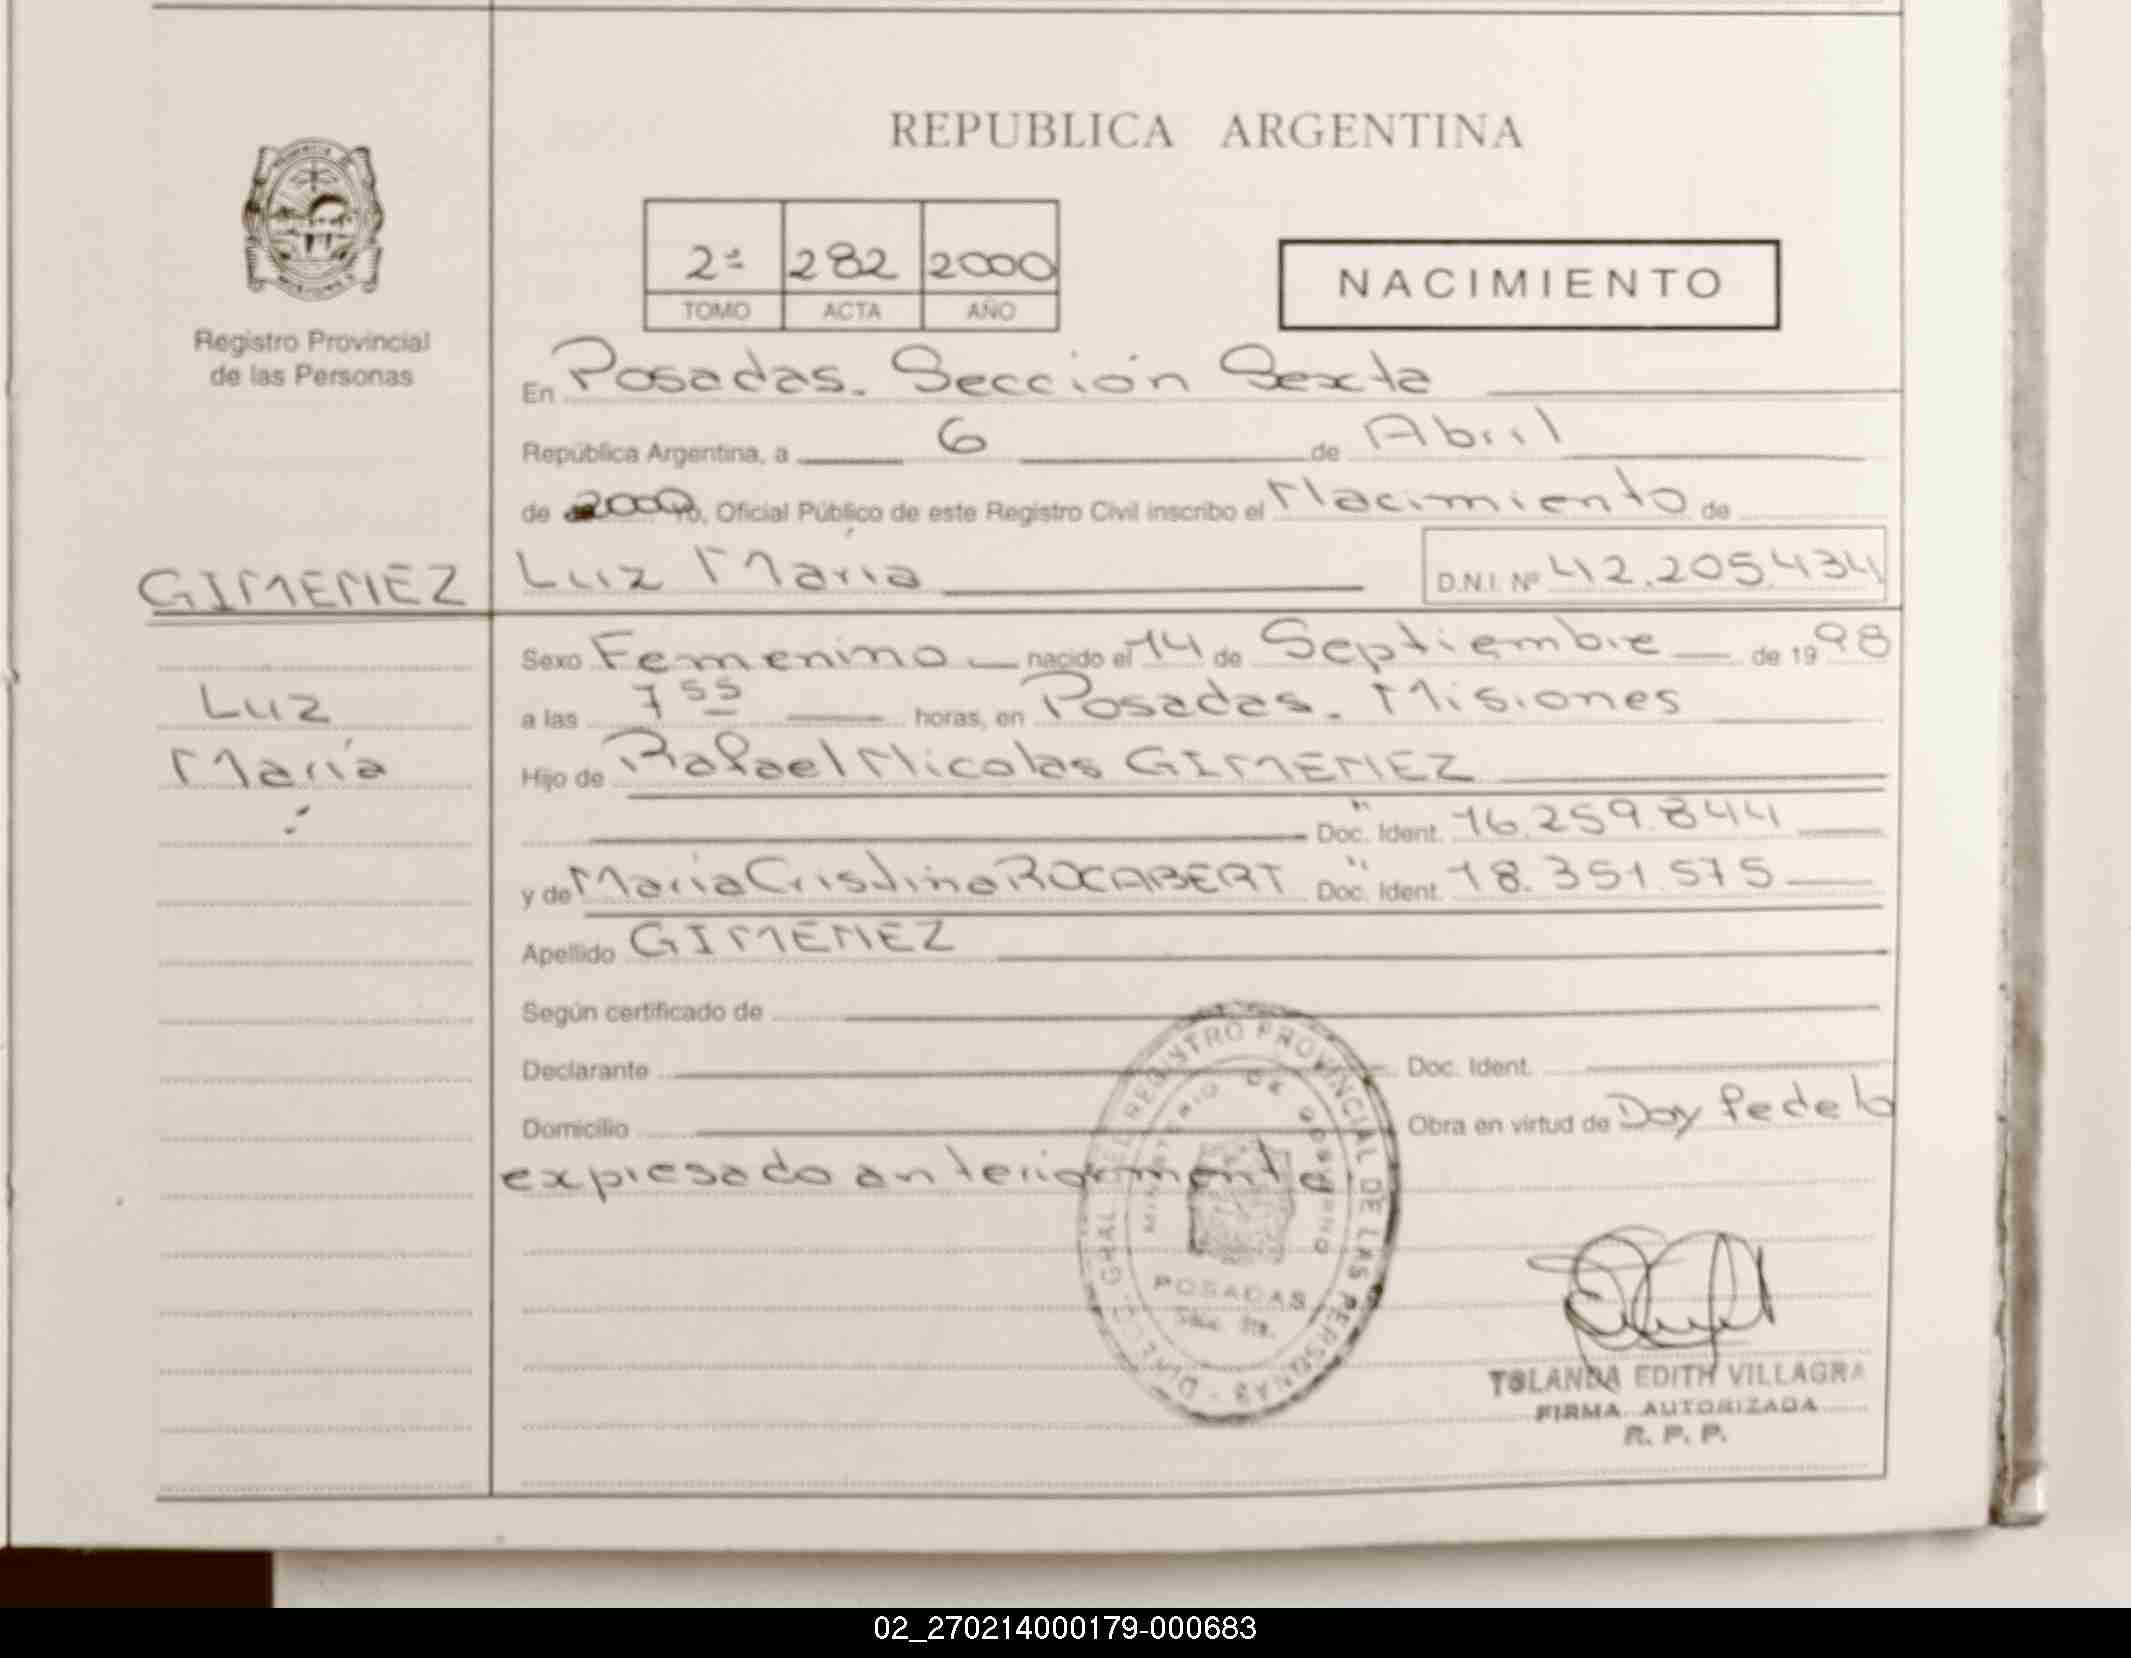 REPUBLICA ARGENTINA
2ª 282 2000
TOMO ACTA AÑO
NACIMIENTO
Registro Provincial
de las Personas
En Posadas. Sección Sexta
República Argentina, a 6 de Abril
de 2000, Oficial Público de este Registro Civil inscribo el Nacimiento de
GIMENEZ Luz María D.N.I. Nº 42.205.434
Sexo Femenino nacido el 14 de Septiembre de 1998
Luz
a las 7 55 horas, en Posadas. Misiones
María
Hijo de Rafael Nicolas GIMENEZ
Doc. Ident. 16.259.844
y de María Cristina ROCABERT Doc. Ident. 18.351.575
Apellido GIMENEZ
Según certificado de
Declarante Doc. Ident.
Domicilio Obra en virtud de Doy Fe de lo
expresado anteriormente
DIRECC. GRAL. DEL REGISTRO PROVINCIAL DE LAS PERSONAS
MINISTERIO DE GOBIERNO
POSADAS
YOLANDA EDITH VILLAGRA
FIRMA AUTORIZADA
R. P. P.
02_270214000179-000683